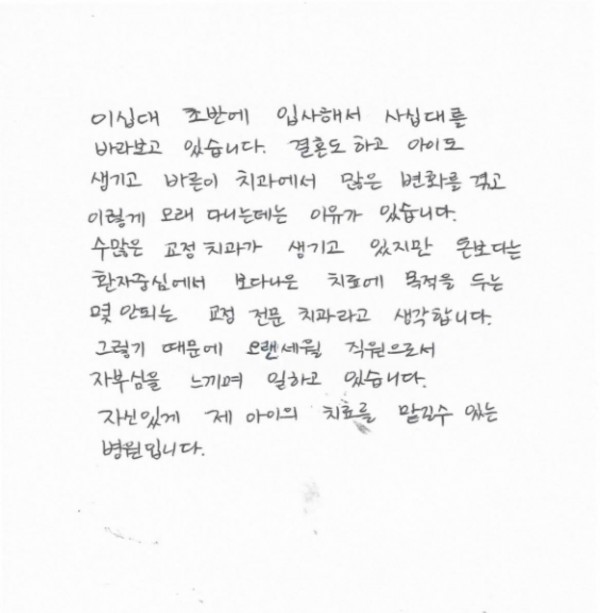 이십대 초반에 입사해서 사십대를
바라보고 있습니다. 결혼도 하고 아이도
생기고 바른이 치과에서 많은 변화를 겪고
이렇게 오래 다니는데는 이유가 있습니다.
수많은 교정 치과가 생기고 있지만 돈보다는
환자중심에서 보다나은 치료에 목적을 두는
몇 안되는 교정 전문 치과라고 생각합니다.
그렇기 때문에 오랜세월 직원으로서
자부심을 느끼며 일하고 있습니다.
자신있게 제 아이의 치료를 맡길수 있는
병원입니다.